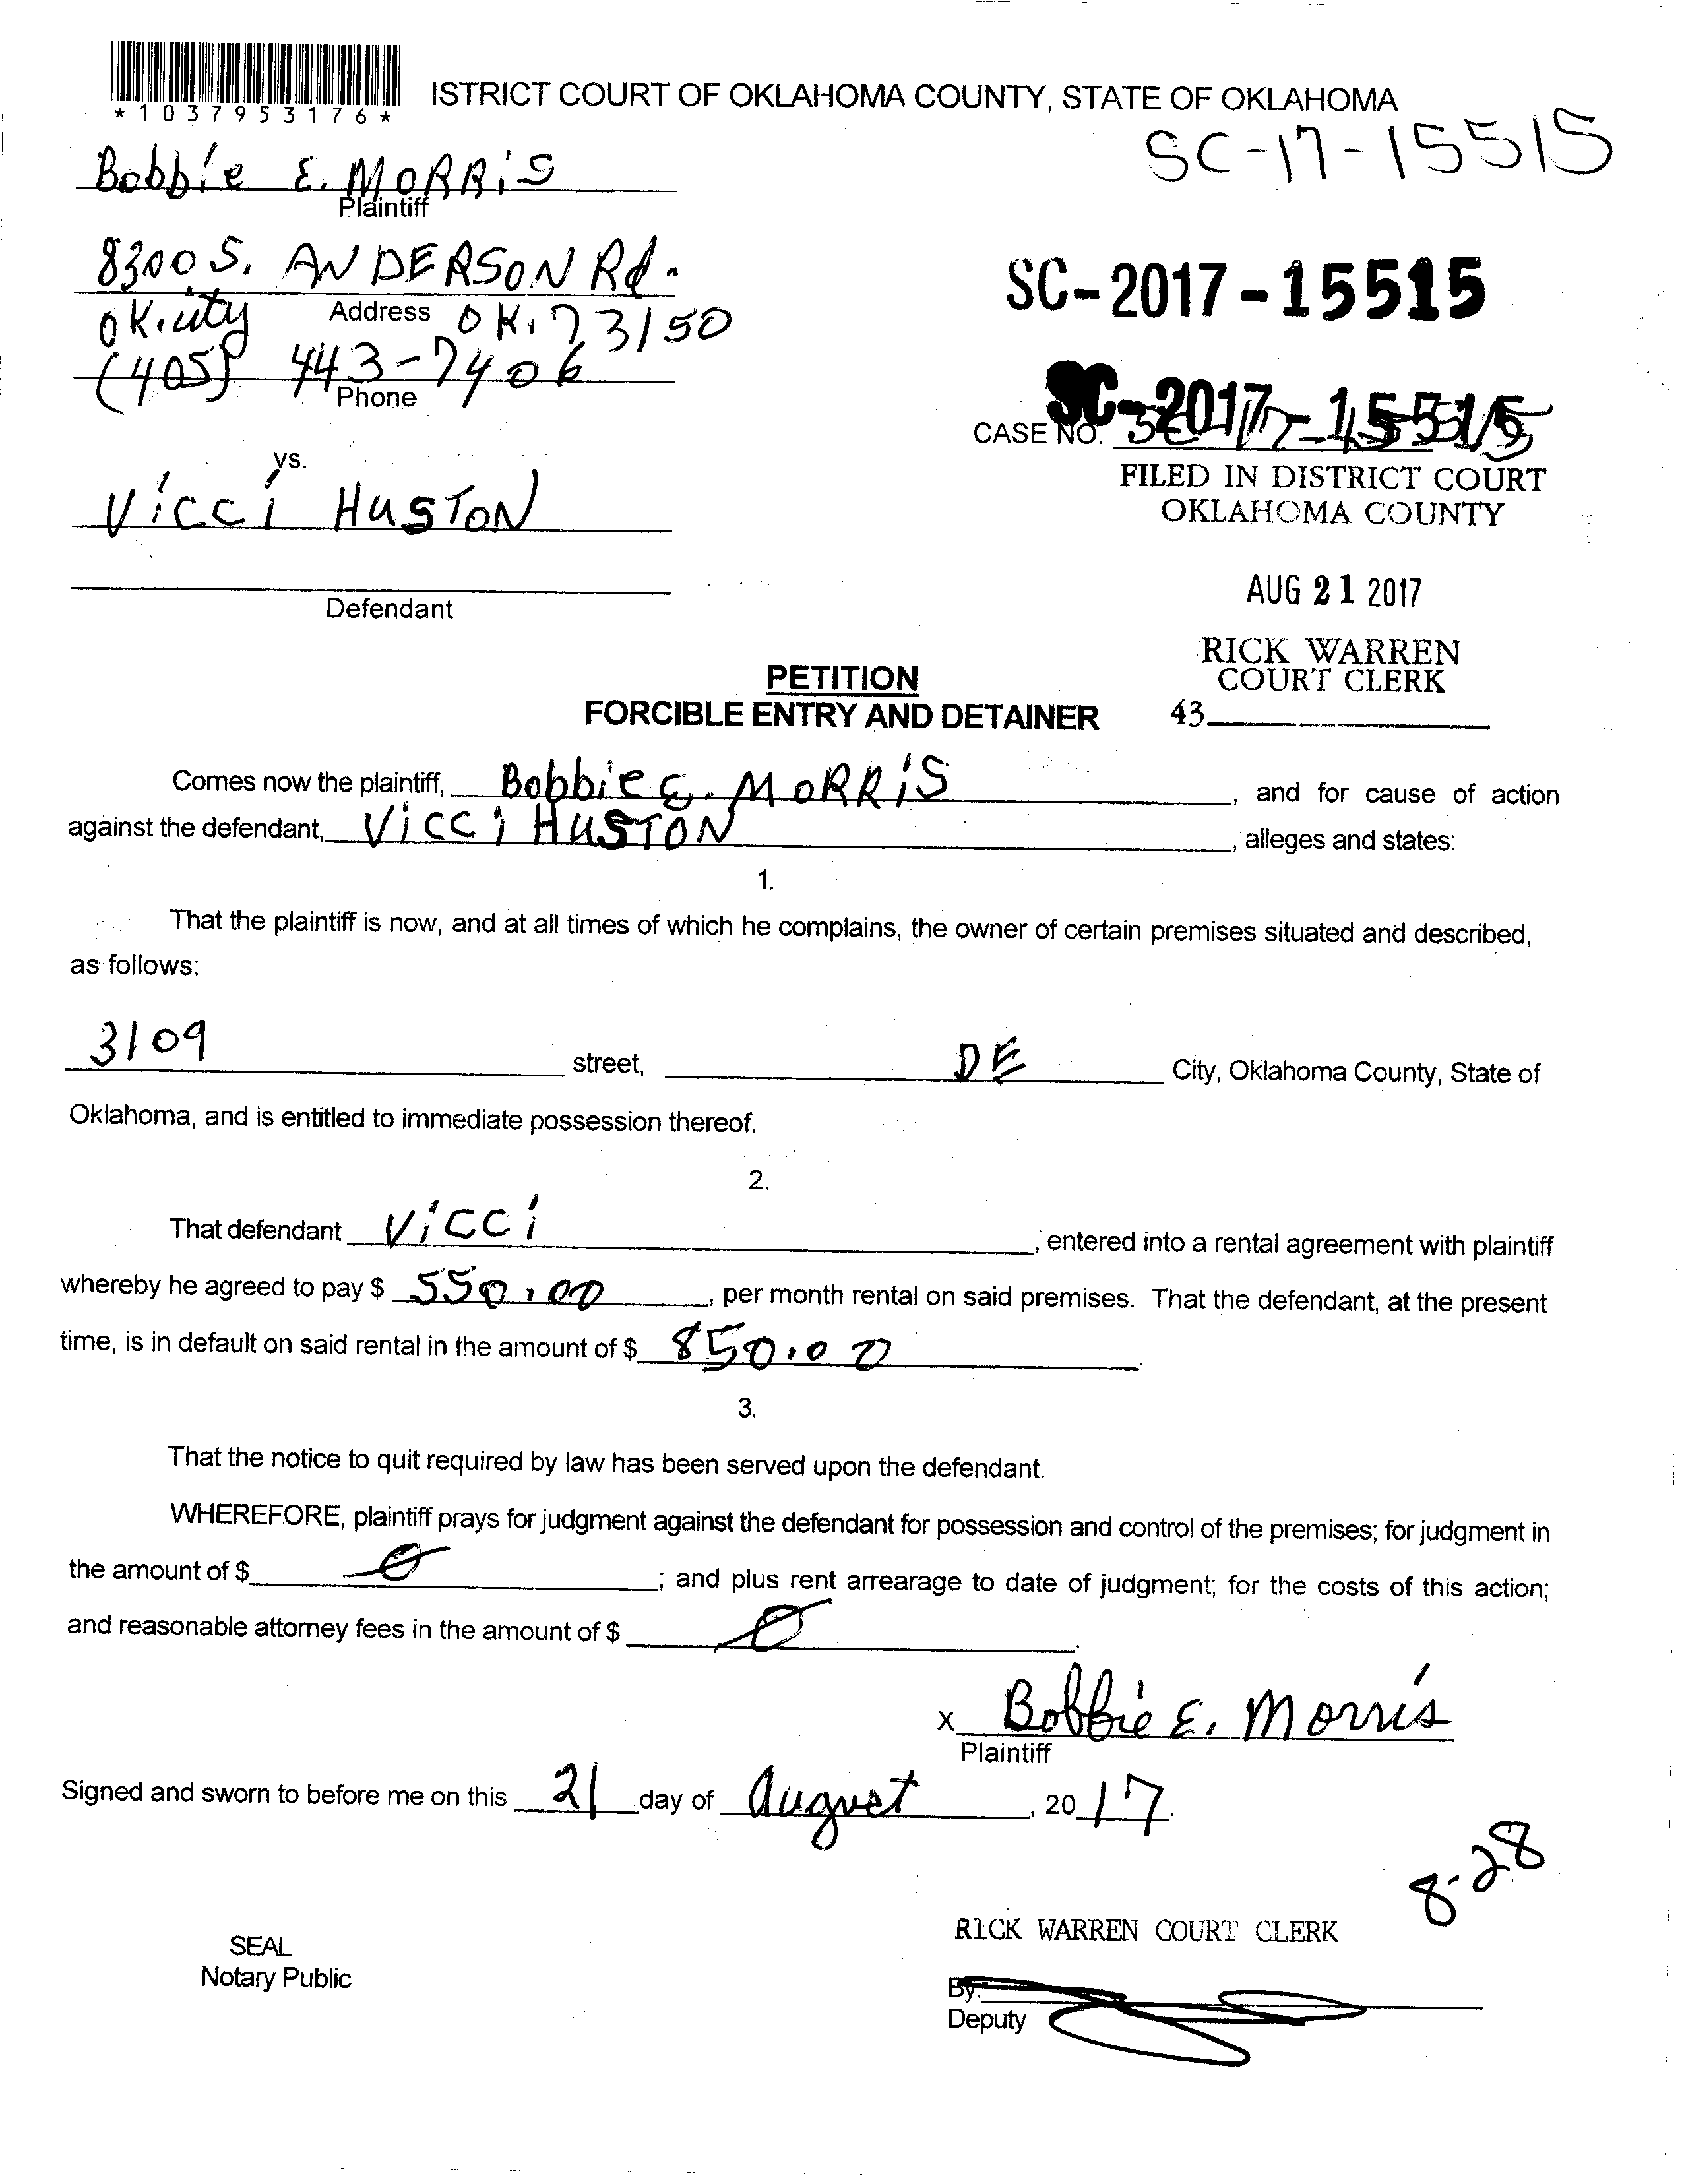 ISTRICT COURT OF OKLAHOMA COUNTY, STATE OF OKLAHOMA
*1037953176*
SC-17-15515
Bobbie E. MORRiS
Plaintiff
8300 S. ANDERSON Rd.
Address
OK. city OK. 73150
(405) 443-7406
Phone
SC-2017-15515
SC-2017-15515
CASE NO.
FILED IN DISTRICT COURT
OKLAHOMA COUNTY
vs.
Vicci HUSTON
Defendant
AUG 21 2017
RICK WARREN
COURT CLERK
43
PETITION
FORCIBLE ENTRY AND DETAINER
Comes now the plaintiff, Bobbie E. MORRiS, and for cause of action
against the defendant, Vicci HUSTON, alleges and states:
1.
That the plaintiff is now, and at all times of which he complains, the owner of certain premises situated and described,
as follows:
3109 street, DE City, Oklahoma County, State of
Oklahoma, and is entitled to immediate possession thereof.
2.
That defendant Vicci, entered into a rental agreement with plaintiff
whereby he agreed to pay $ 550.00, per month rental on said premises. That the defendant, at the present
time, is in default on said rental in the amount of $ 850.00.
3.
That the notice to quit required by law has been served upon the defendant.
WHEREFORE, plaintiff prays for judgment against the defendant for possession and control of the premises; for judgment in
the amount of $ 0; and plus rent arrearage to date of judgment; for the costs of this action;
and reasonable attorney fees in the amount of $ 0.
x Bobbie E. Morris
Plaintiff
Signed and sworn to before me on this 21 day of August, 2017.
8-28
RICK WARREN COURT CLERK
SEAL
Notary Public
By:
Deputy